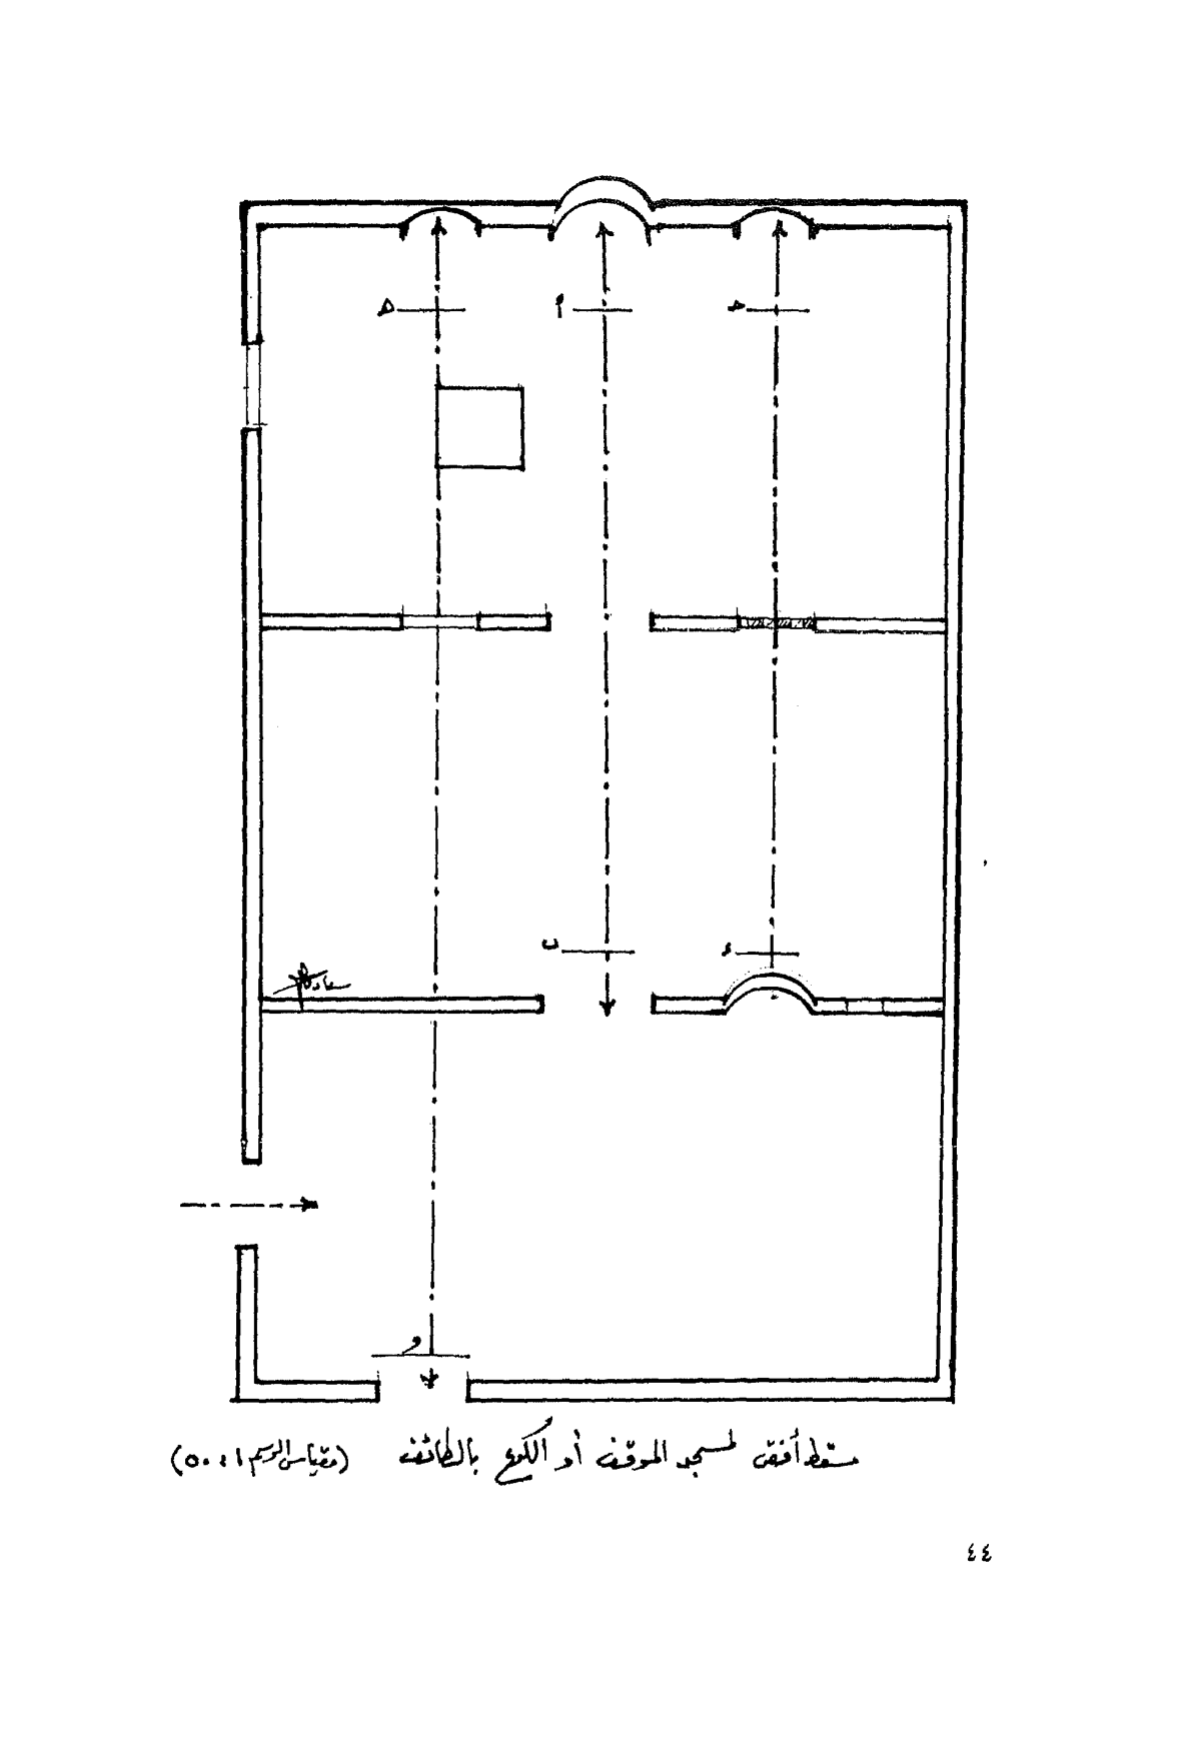 ه أ حـ
ب ء
و
مسقط أفقى لمسجد الموقف أو الكوع بالطائف (مقياس الرسم ١ : ٥٠)
٤٤